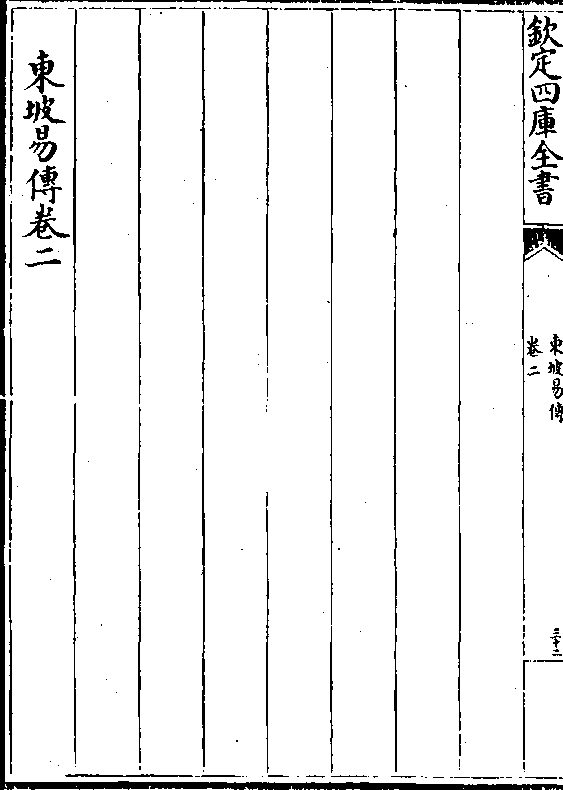 欽定四庫全書
東坡易傳
卷二
三十二
東坡易傳卷二